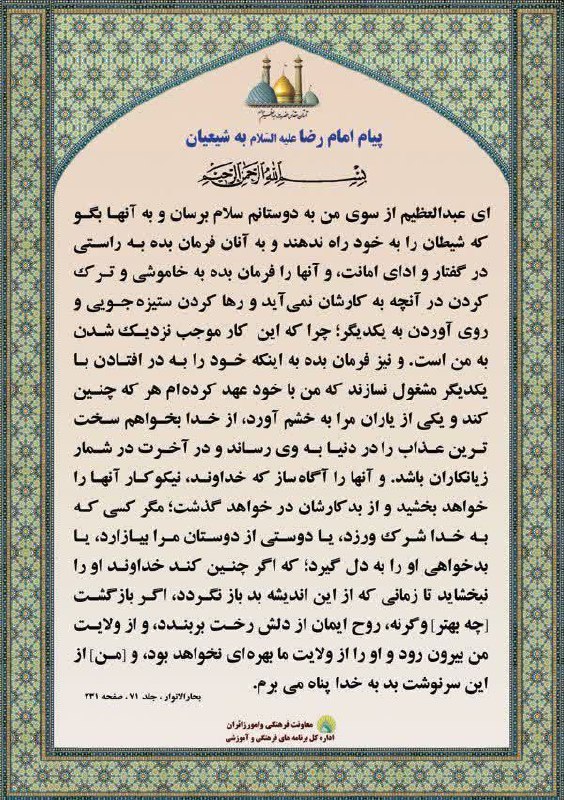 آستان مقدس حضرت عبدالعظیم
پیام امام رضا علیه السّلام به شیعیان
بسم الله الرحمن الرحیم
ای عبدالعظیم از سوی من به دوستانم سلام برسان و به آنها بگو
که شیطان را به خود راه ندهند و به آنان فرمان بده به راستی
در گفتار و ادای امانت، و آنها را فرمان بده به خاموشی و ترک
کردن در آنچه به کارشان نمی‌آید و رها کردن ستیزه‌جویی و
روی آوردن به یکدیگر؛ چرا که این کار موجب نزدیک شدن
به من است. و نیز فرمان بده به اینکه خود را به در افتادن با
یکدیگر مشغول نسازند که من با خود عهد کرده‌ام هر که چنین
کند و یکی از یاران مرا به خشم آورد، از خدا بخواهم سخت
ترین عذاب را در دنیا به وی رساند و در آخرت در شمار
زیانکاران باشد. و آنها را آگاه ساز که خداوند، نیکوکار آنها را
خواهد بخشید و از بدکارشان در خواهد گذشت؛ مگر کسی که
به خدا شرک ورزد، یا دوستی از دوستان مرا بیازارد، یا
بدخواهی او را به دل گیرد؛ که اگر چنین کند خداوند او را
نبخشاید تا زمانی که از این اندیشه بد باز نگردد، اگر بازگشت
[چه بهتر] وگرنه، روح ایمان از دلش رخت بربندد، و از ولایت
من بیرون رود و او را از ولایت ما بهره‌ای نخواهد بود، و [من] از
این سرنوشت بد به خدا پناه می برم.
بحارالانوار، جلد ۷۱، صفحه ۲۳۱
معاونت فرهنگی وامورزائران
اداره کل برنامه های فرهنگی و آموزشی